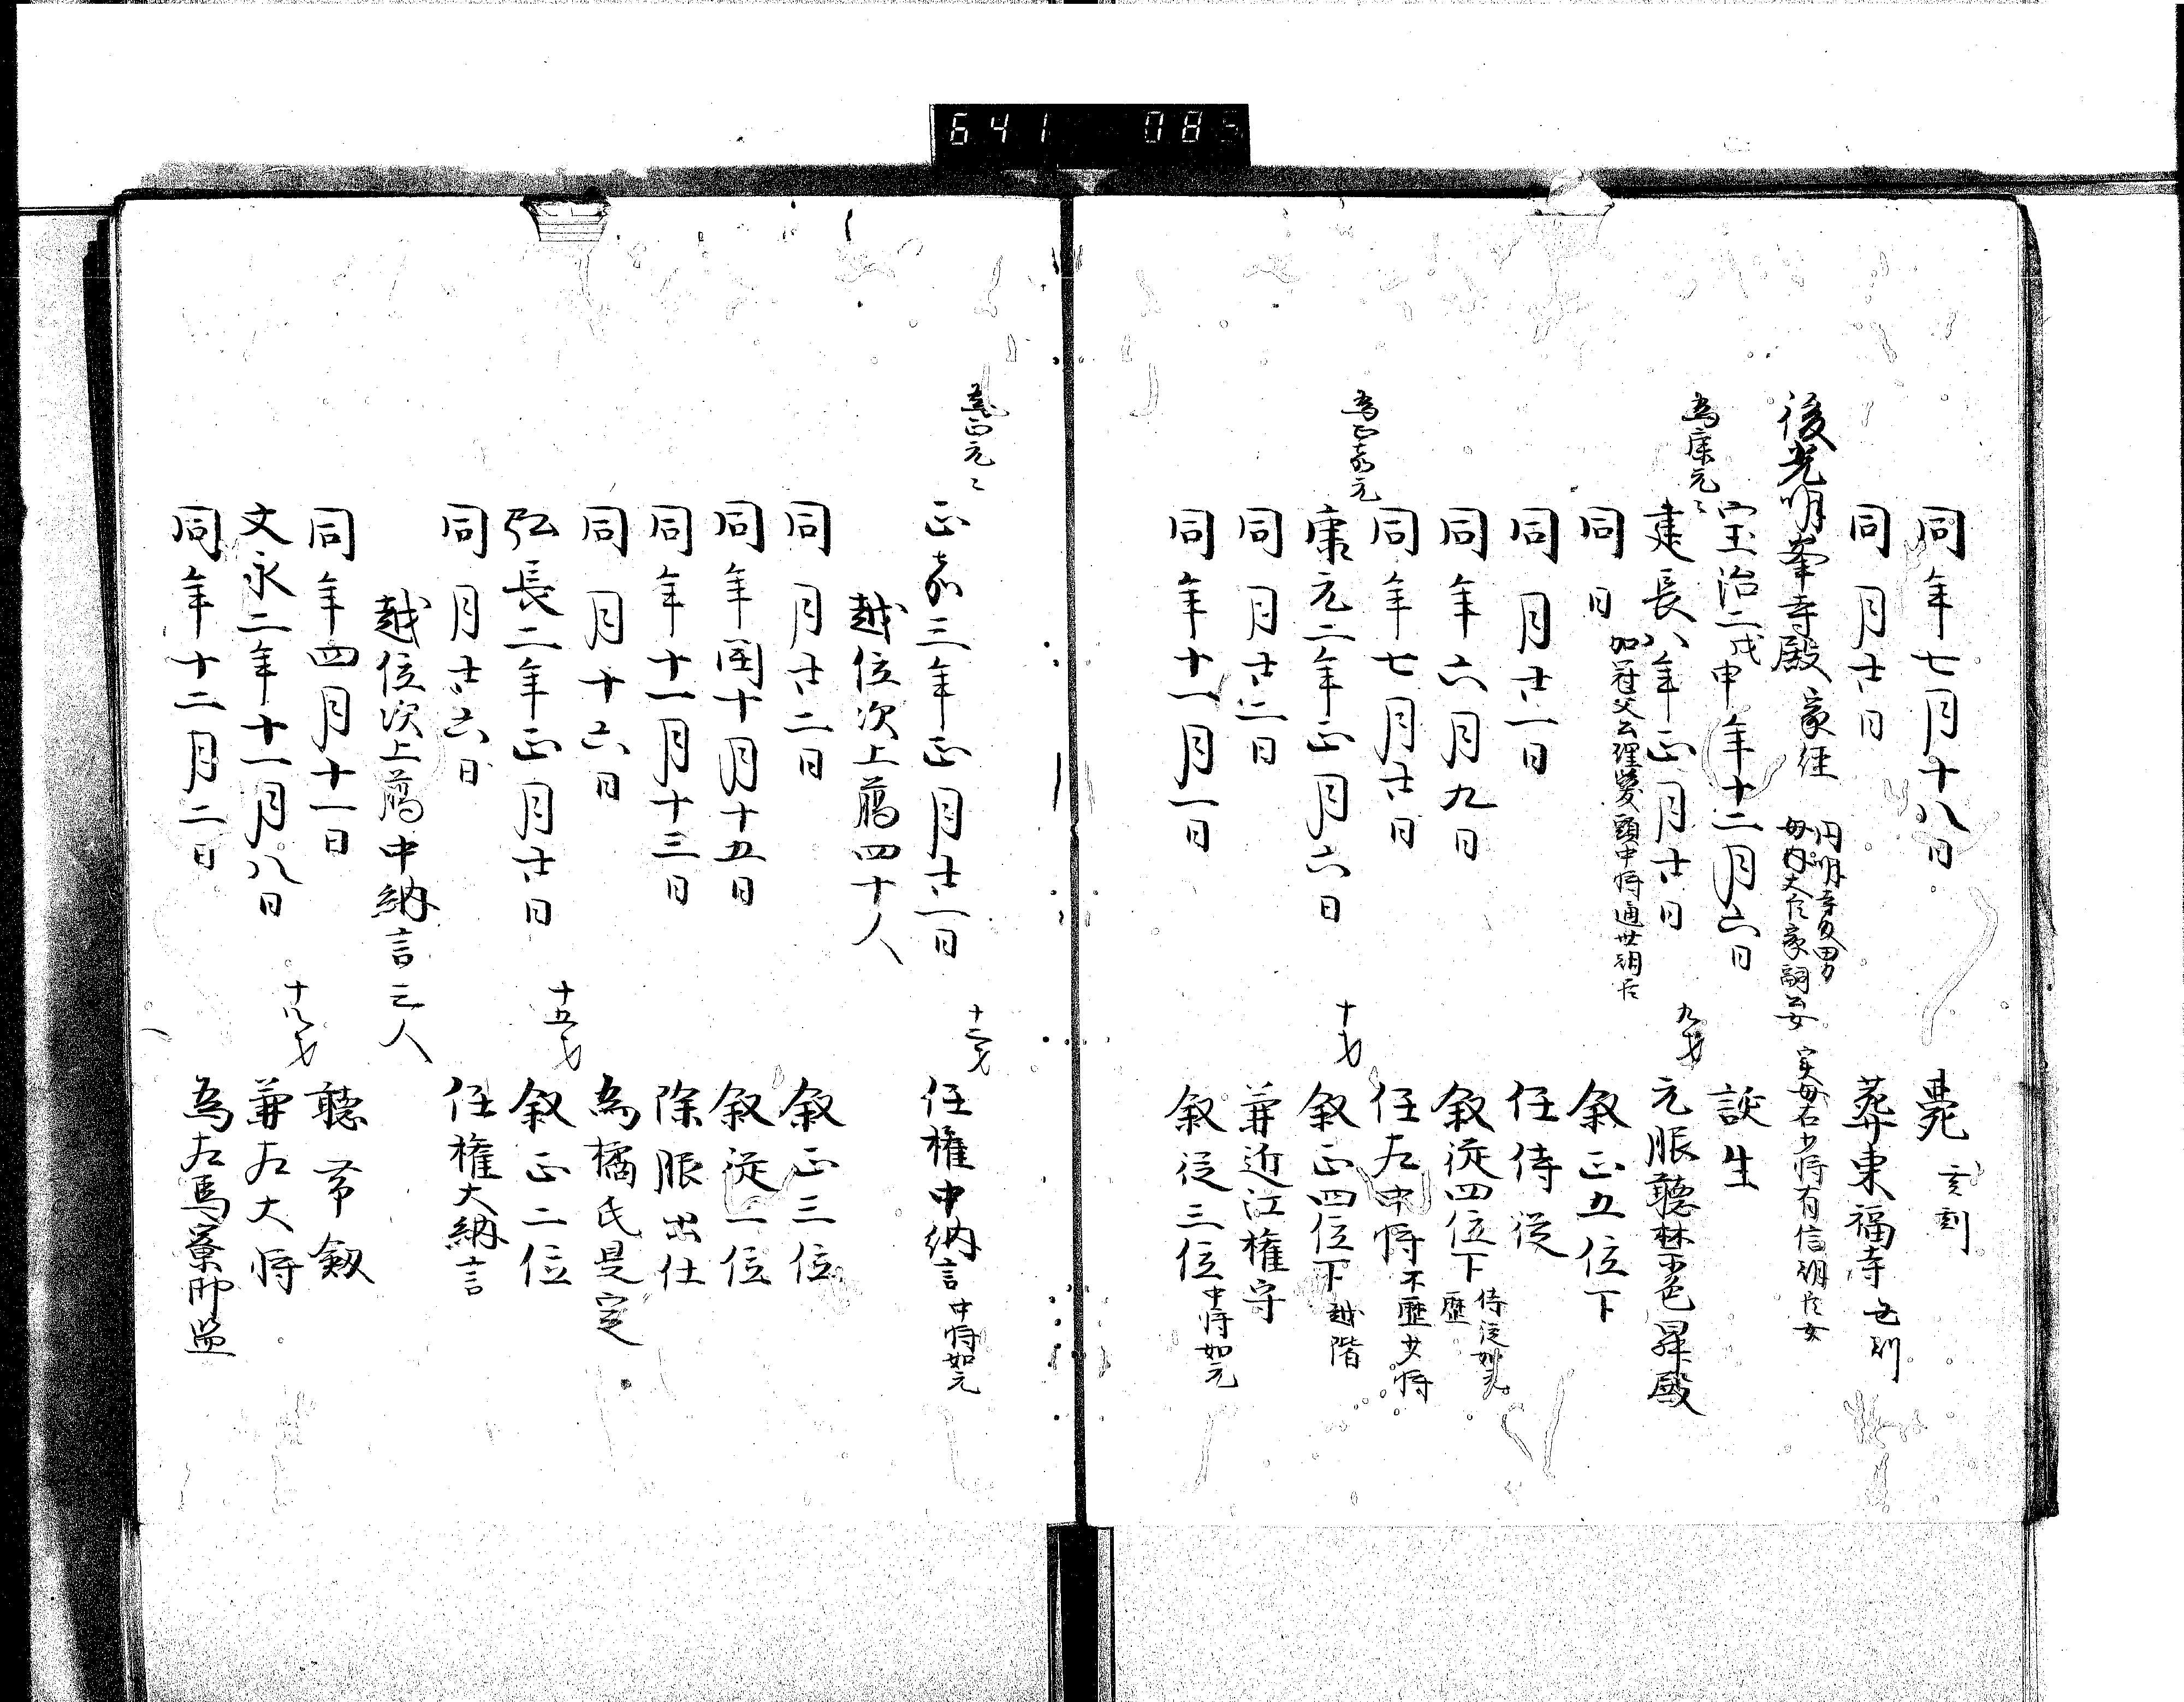 641 08
同年七月十八日 薨 亥刻
同月廿日 葬東福寺
後光明峯寺殿 家経 円明寺殿男 母内大臣家嗣公女 実母右少将有信朝臣女
宝治二戊申年十二月六日 誕生
為康元々
建長八年正月廿日 九才 元服聴禁色昇殿
加冠父公理髪頭中将通世朝臣
同日 叙正五位下
同月廿一日 任侍従
同年六月九日 叙従四位下 侍従如元
同年七月廿日 任左中将 不歴少将
為正嘉元
康元二年正月六日 十才 叙正四位下 越階
同月廿二日 兼近江権守
同年十一月一日 叙従三位 中将如元
為正元々
正嘉三年正月廿一日 十二才 任権中納言 中将如元
越位次上臈四十人
同月廿二日 叙正三位
同年閏十月十五日 叙従二位
同年十一月十三日 除服出仕
同月十六日 為橘氏是定
弘長二年正月廿日 十五才 叙正二位
同月廿六日 任権大納言
越位次上臈中納言三人
同年四月十一日 聴帯剱
文永二年十一月八日 十八才 兼左大将
同年十二月二日 為左馬寮御監